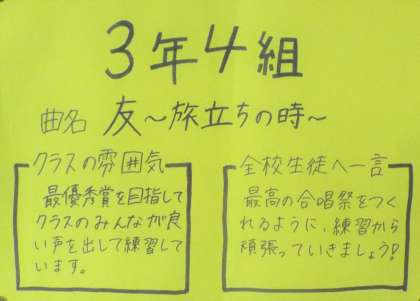 3年4組
曲名 友～旅立ちの時～
クラスの雰囲気
最優秀賞を目指して
クラスのみんなが良
い声を出して練習して
います。
全校生徒へ一言
最高の合唱祭をつく
れるように、練習から
頑張っていきましょう!